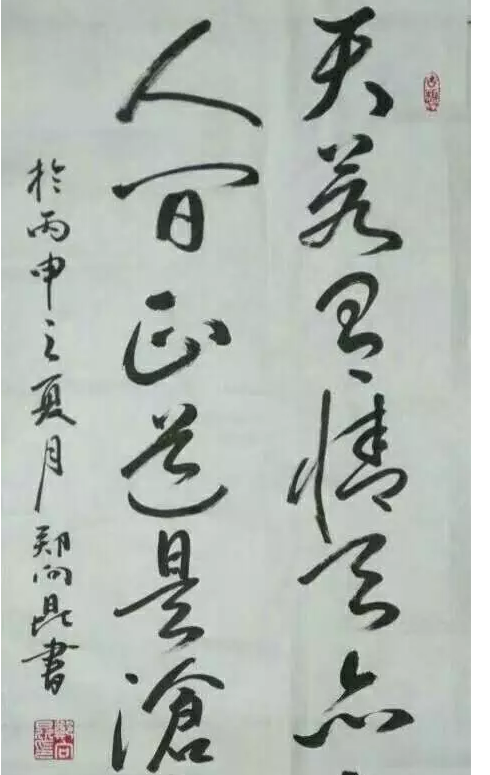 天若有情天亦
人间正道是滄
於丙申之夏月郑向昆書